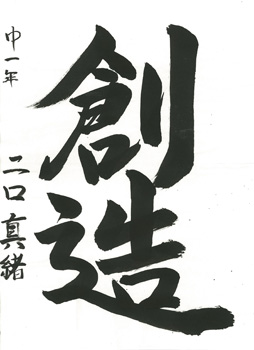 創造
中一年
二口真緒